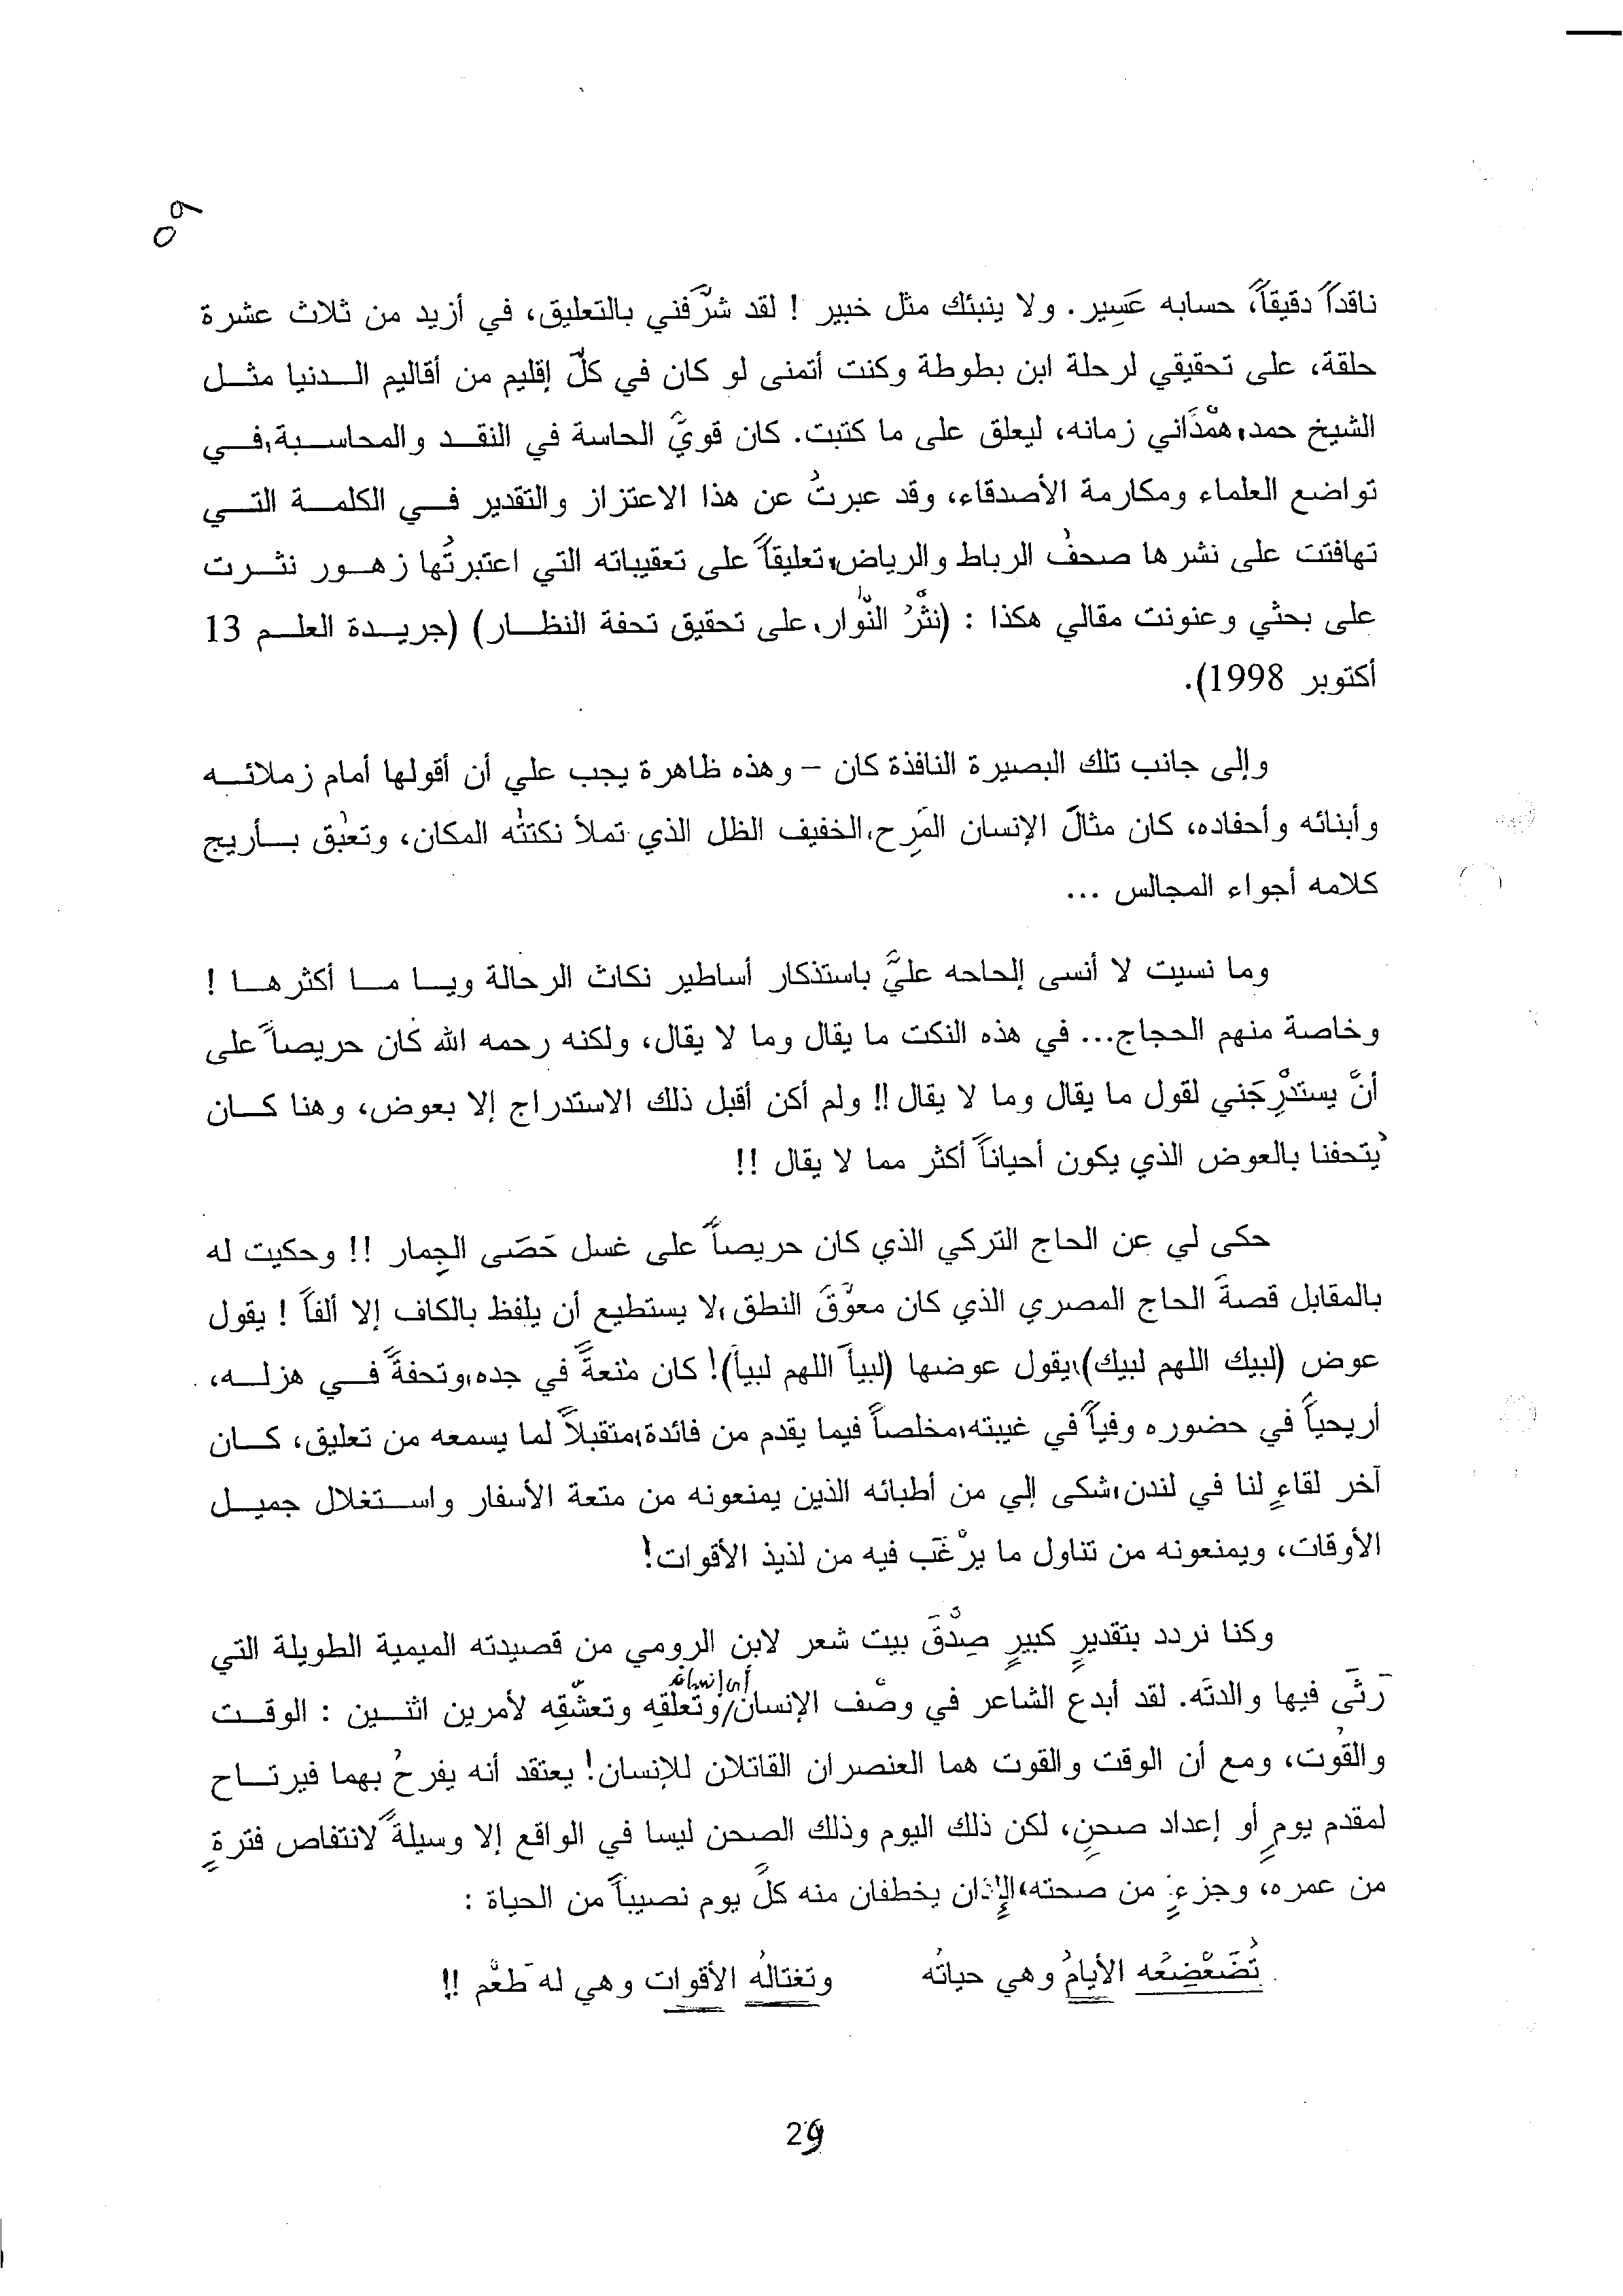 ناقداً دقيقاً، حسابه عَسِير. ولا ينبئك مثل خبير ! لقد شرَّفني بالتعليق، في أزيد من ثلاث عشرة
حلقة، على تحقيقي لرحلة ابن بطوطة وكنت أتمنى لو كان في كلِّ إقليم من أقاليم الدنيا مثل
الشيخ حمد، همْدَاني زمانه، ليعلق على ما كتبت. كان قويَّ الحاسة في النقد والمحاسبة، في
تواضع العلماء ومكارمة الأصدقاء، وقد عبرتُ عن هذا الاعتزاز والتقدير في الكلمة التي
تهافتت على نشرها صحفُ الرباط والرياض، تعليقاً على تعقيباته التي اعتبرتُها زهور نثرت
على بحثي وعنونت مقالي هكذا : (نثْرُ النّوار، على تحقيق تحفة النظار) (جريدة العلم 13
أكتوبر 1998).
وإلى جانب تلك البصيرة النافذة كان – وهذه ظاهرة يجب علي أن أقولها أمام زملائه
وأبنائه وأحفاده، كان مثالَ الإنسان المَرِح، الخفيف الظل الذي تملأ نكتتُه المكان، وتعبْق بأريج
كلامه أجواء المجالس ...
وما نسيت لا أنسى إلحاحه عليَّ باستذكار أساطير نكاث الرحالة ويا ما أكثرها !
وخاصة منهم الحجاج... في هذه النكت ما يقال وما لا يقال، ولكنه رحمه الله كان حريصاً على
أنَّ يستدْرِجَني لقول ما يقال وما لا يقال!! ولم أكن أقبل ذلك الاستدراج إلا بعوض، وهنا كان
يُتحفنا بالعوض الذي يكون أحياناً أكثر مما لا يقال !!
حكى لي عن الحاج التركي الذي كان حريصاً على غسل حَصَى الجِمار !! وحكيت له
بالمقابل قصةَ الحاج المصري الذي كان معوَّقَ النطق، لا يستطيع أن يلفظ بالكاف إلا ألفاً ! يقول
عوض (لبيك اللهم لبيك)، يقول عوضها (لبيأ اللهم لبيأ)! كان متْعةً في جده، وتحفةً في هزله،
أريحياً في حضوره وفياً في غيبته، مخلصاً فيما يقدم من فائدة، متقبلاً لما يسمعه من تعليق، كان
آخر لقاءٍ لنا في لندن، شكى إلي من أطبائه الذين يمنعونه من متعة الأسفار واستغلال جميل
الأوقات، ويمنعونه من تناول ما يرْغَب فيه من لذيذ الأقوات!
وكنا نردد بتقديرٍ كبيرٍ صِدْقَ بيت شعر لابن الرومي من قصيدته الميمية الطويلة التي
رَثَى فيها والدتَه. لقد أبدع الشاعر في وصْف الإنسان/ أي إنسان وتعلقِه وتعشّقِه لأمرين اثنين : الوقت
والقُوت، ومع أن الوقت والقوت هما العنصران القاتلان للإنسان! يعتقد أنه يفرحُ بهما فيرتاح
لمقدم يومٍ أو إعداد صحنٍ، لكن ذلك اليوم وذلك الصحن ليسا في الواقع إلا وسيلةً لانتقاص فترةٍ
من عمره، وجزءٍ من صحته، يخطفان منه كلَّ يوم نصيباً من الحياة :
تُضَعْضِعُه الأيامُ وهي حياتُه وتغتالُه الأقوات وهي له طَعْم !!
29